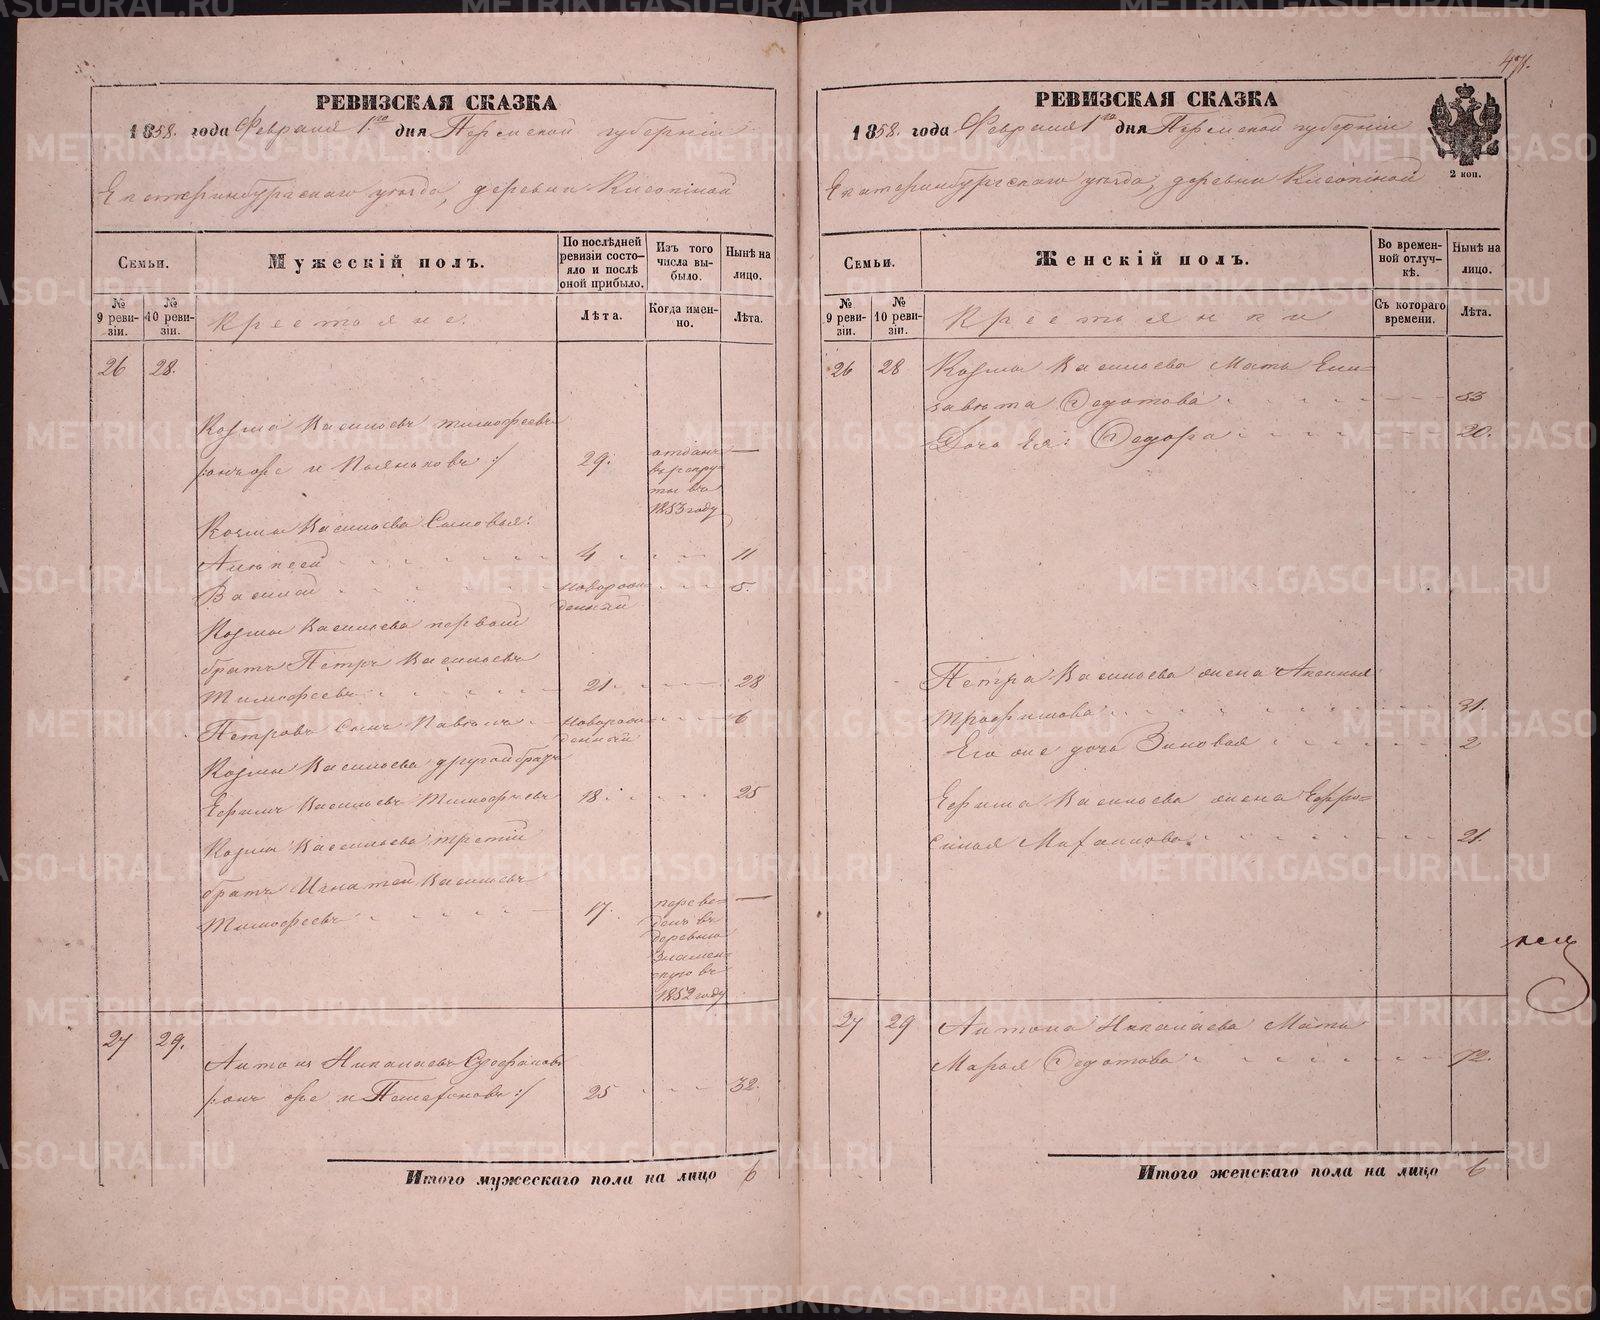 47.
РЕВИЗСКАЯ СКАЗКА
1858. года Февраля 1го дня Пермской губернiи
Екатеринбургскаго уѣзда, деревни
Семьи.
Мужескiй полъ.
По послѣдней ревизiи состояло и послѣ оной прибыло.
Изъ того числа выбыло.
Нынѣ на лицо.
№ 9 ревизiи.
№ 10 ревизiи.
Крестьяне.
Лѣта.
Когда именно.
Лѣта.
26 28.
Козма Васильевъ Тимофеевъ
/:онъ же и :/ 29. отданъ въ рекруты въ 1853 году —
Козмы Васильева Сыновья:
Алексей 4 11
Василей новорожденный 5.
Козмы Васильева первый
братъ Петръ Васильевъ
Тимофеевъ 21 28
Петровъ Сынъ Павелъ новорожденный 6
Козмы Васильева другой братъ
Ефимъ Васильевъ Тимофеевъ 18 25
Козмы Васильева третiй
братъ Игнатей Васильевъ
Тимофеевъ 17. переведенъ въ деревню Знаменскую въ 1852 году —
27 29.
Антонъ Николаевъ
/:онъ же и :/ 25 32.
Итого мужескаго пола на лицо 6
РЕВИЗСКАЯ СКАЗКА
1858. года Февраля 1го дня Пермской губернiи
2 коп.
Екатеринбургскаго уѣзда, деревни
Семьи.
Женскiй полъ.
Во временной отлучкѣ.
Нынѣ на лицо.
№ 9 ревизiи.
№ 10 ревизiи.
Крестьянки
Съ котораго времени.
Лѣта.
26 28 Козмы Васильева Мать Ели=
завета Федотова 53
Дочь Ея: Федора 20.
Петра Васильева жена Аксинья
Трофимова 31.
Его же дочь Зиновья 2
Ефима Васильева жена Ефро=
синья 21.
27 29 Антона Николаева Мать
Марья Федотова 72.
Итого женскаго пола на лицо 6
METRIKI.GASO-URAL.RU